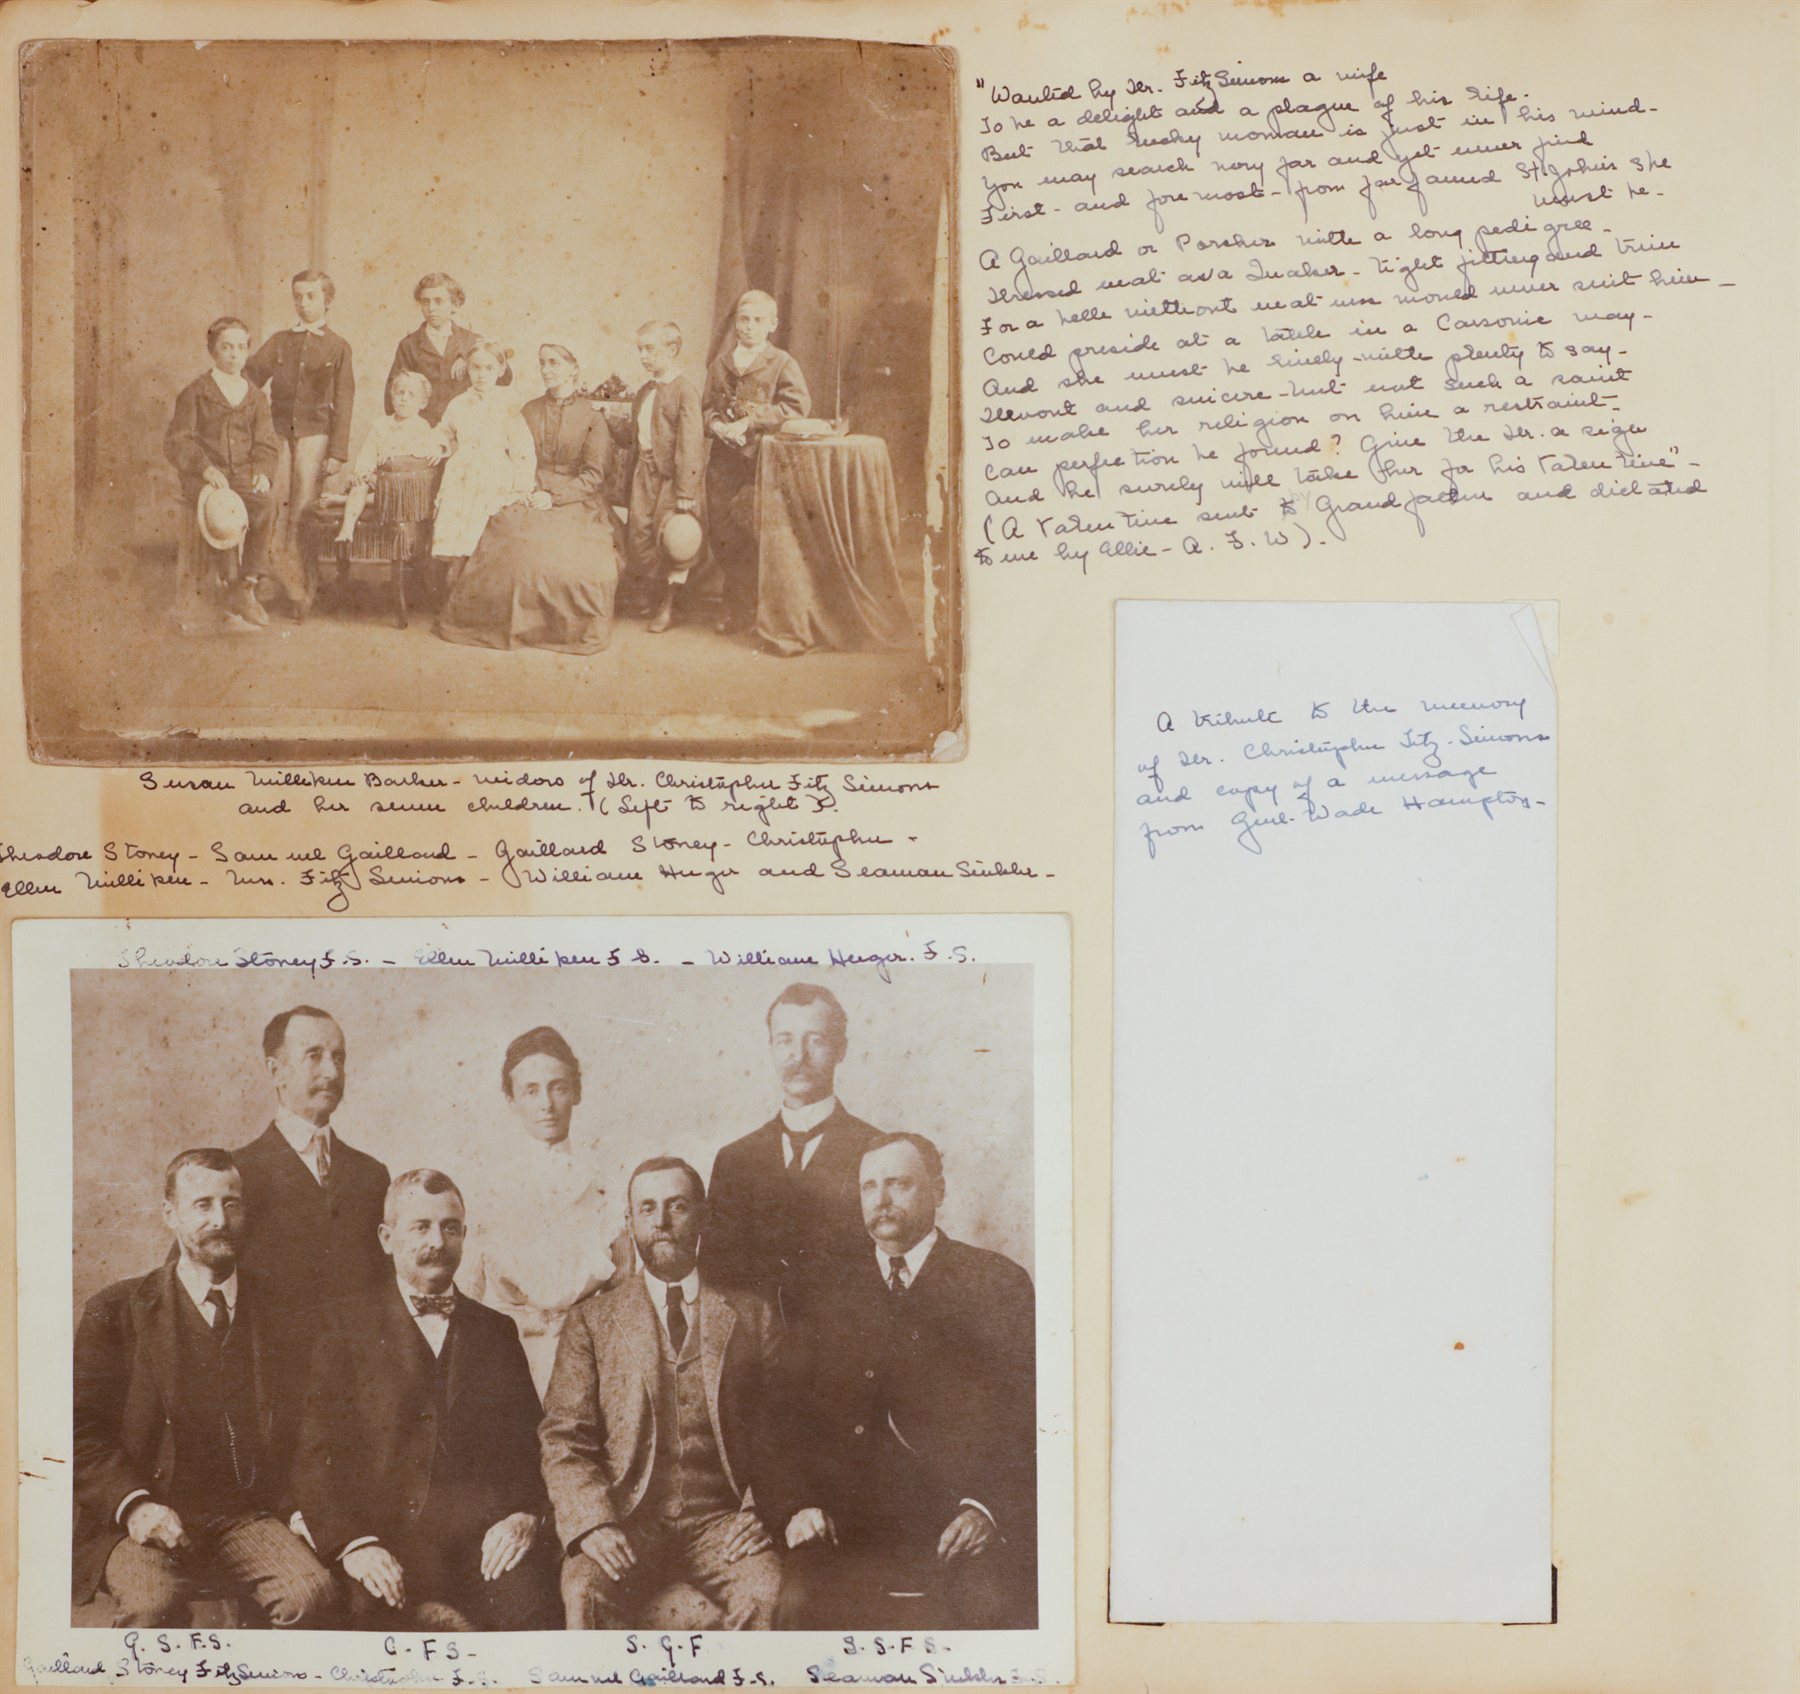 "Wanted by Dr. Fitz Simons a wife
To be a delight and a plague of his life.
But that lucky woman is just in his mind-
You may search very far and yet never find
First - and foremost - from far famed St. John's she
must be -
A Gaillard or Porcher with a long pedigree -
Dressed neat as a Quaker - tight fitting and trim
For a belle without neatness would never suit him -
Could preside at a table in a Carsonie way -
And she must be lively - with plenty to say -
Devout and sincere - but not such a saint
To make her religion on him a restraint -
Can perfection be found? Give the Dr. a sign
And he surely will take her for his Valentine" -
(A Valentine sent to by Grandfather and dictated
to me by Ellie - A. F. W).
A tribute to the memory
of Dr. Christopher Fitz-Simons
and copy of a message
from Genl. Wade Hampton -
Susan Milliken Barker - widow of Dr. Christopher Fitz Simons
and her seven children. (Left to right).
Theodore Stoney - Samuel Gaillard - Gaillard Stoney - Christopher -
Ellen Milliken - Mrs. Fitz Simons - William Huger and Seaman Sinkler -
Theodore Stoney F.S. - Ellen Milliken F S. - William Huger. F.S.
G. S. F.S. C - F S - S. G. F S. S. F S -
Gaillard Stoney FitzSimons - Christopher F.S. Samuel Gaillard F.S. Seaman Sinkler F.S.